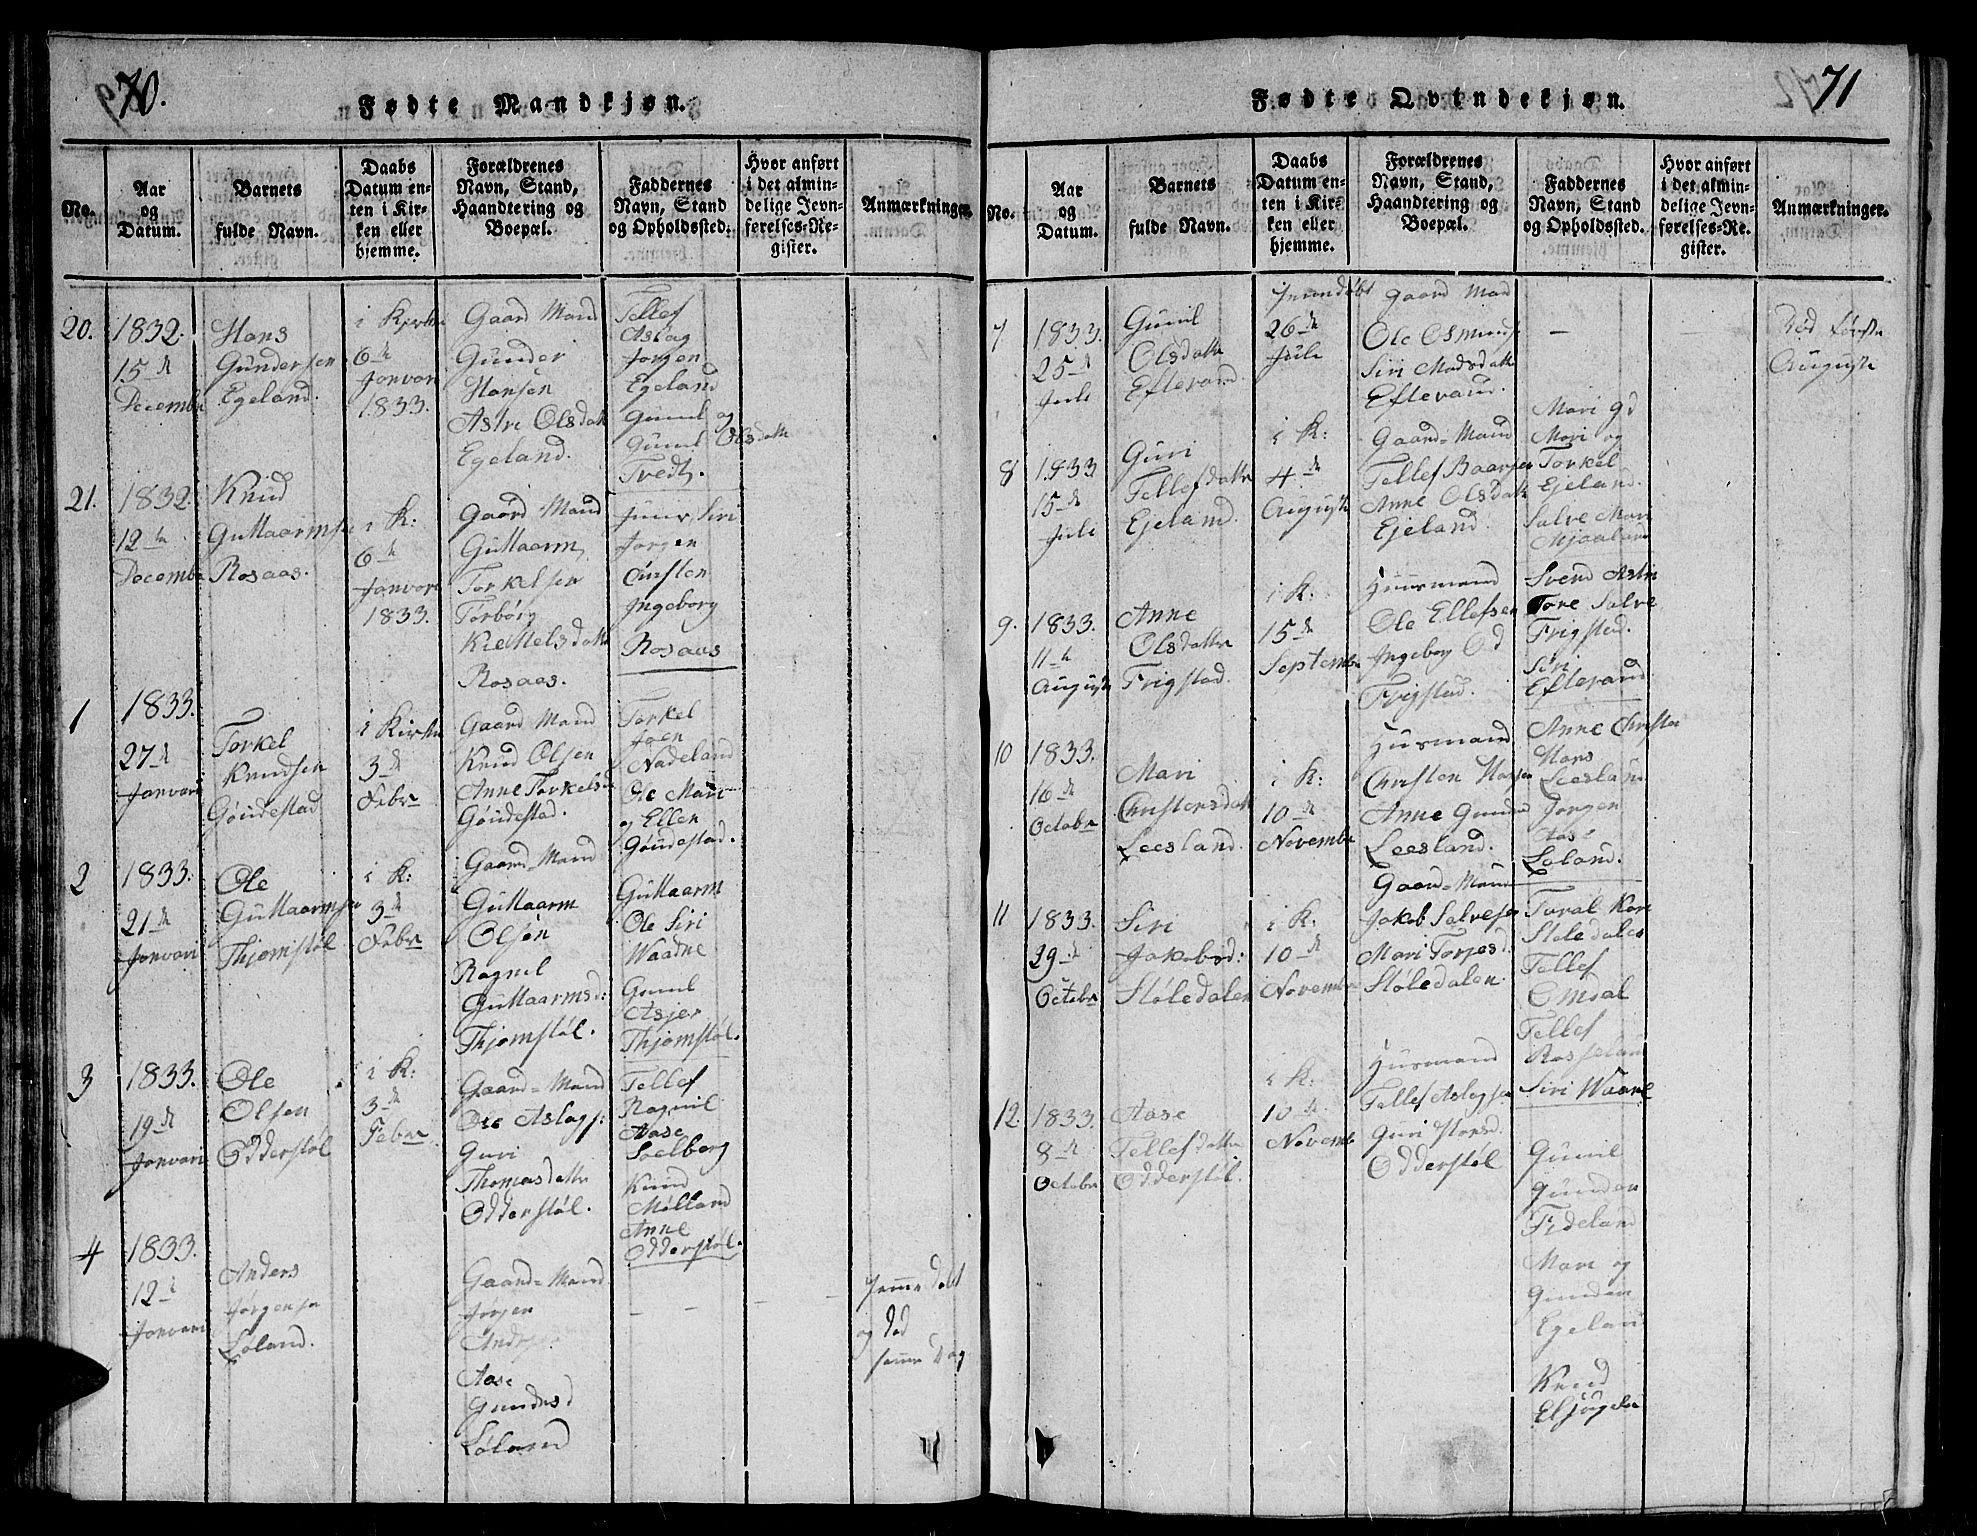 70.
Fødte Mandkjøn.
No.
Aar
og
Datum.
Barnets
fulde Navn.
Daabs
Datum en-
ten i Kir-
ken eller
hjemme.
Forældrenes
Navn, Stand,
Haandtering og
Boepæl.
Faddernes
Navn, Stand
og Opholdssted.
Hvor anført
i det almin-
delige Jevn-
førelses-Re-
gister.
Anmærkninger.
20.
1832.
15de
Decembr
Hans
Gundersen
Egeland.
i Kirken
6te
Janvari
1833.
Gaard Mand
Gunder
Hansen
Astri Olsdatter
Egeland.
Tellef
Aslag
Jørgen
Egeland
Gunil og
Gunil Olsdatter
Tvedt.
21.
1832.
12te
Decembr
Knud
Guttaarmsen
Rosaas.
i K:
6te
Janvari
1833.
Gaard-Mand
Guttaarm
Torkelsen
Torborg
Kiettelsdatter
Rosaas.
Siri
Jørgen
Christen
Ingeborg
Rosaas
1
1833.
27de
Janvari
Torkel
Knudsen
Gøudestad
i Kirken
3de
Febr
Gaard Mand
Knud Olsen
Anne Torkelsd
Gøudestad.
Torkel
Joen
Nadeland
Ole Mari
og Ellen
Gøudestad.
2
1833.
21de
Janvari
Ole
Guttaarmsen
Thjomstøl
i K:
3de
Febr
Gaard-Mand
Guttaarm
Olsen
Ragnil
Guttaarmsd:
Thjomstøl.
Guttaarm
Ole Siri
Waadne
Gunil
Asjer
Thjomstøl.
3
1833.
19de
Janvari
Ole
Olsen
Odderstøl
i K:
3de
Febr
Gaard-Mand
Ole Aslags:
Guri
Thomasdatter
Odderstøl.
Tellef
Ragnil
Aase
Soelborg
Knud
Mølland
Anne
Odderstøl.
4
1833.
12te
Janvari
Anders
Jørgensen
Løland.
Gaard-Mand
Jørgen
Anders
Aase
Gundersd
Løland
Jemme døbt
og død
samme Dag
71
Fødte Qvindekjøn.
No.
Aar
og
Datum.
Barnets
fulde Navn.
Daabs
Datum en-
ten i Kir-
ken eller
hjemme.
Forældrenes
Navn, Stand,
Haandtering og
Boepæl.
Faddernes
Navn, Stand
og Opholdssted.
Hvor anført
i det almin-
delige Jevn-
førelses-Re-
gister.
Anmærkninger.
7
1833.
25de
Juli
Gunil
Olsdatter
Eftevand.
Jemmdøbt
26de
Juli
Gaard Mand
Ole Osmunds
Siri Madsdatter
Eftevand.
Død første
Augusti
8
1833
15de
Juli
Guri
Tellefsdatter
Ejeland.
i K:
4de
Augusti
Gaard-Mand
Tellef Baarsen
Anne Olsdatter
Ejeland.
Mari gd
Mari og
Torkel
Ejeland.
Salve Mari
Mjaaland
9.
1833.
11te
Augusti
Anne
Olsdatter
Frigstad.
i K:
15de
Septembr
Huusmand
Ole Ellefsen
Ingeborg Od
Frigstad.
Svend Astri
Tore Salve
Frigstad.
Siri
Eftevand
10
1833.
16de
Octobr
Mari
Christensdatter
Leesland.
i K:
10de
Novembr
Husmand
Christen Hansen
Anne Gunders
Leesland.
Anne Christen
Hans
Leesland
Jørgen
Aase
Løland.
11
1833.
29de
Octobr
Siri
Jakobsd:
Støledalen
i K:
10de
Novembr
Gaard-Mand
Jakob Salvesen
Mari Torjesd.
Støledalen.
Toral Kari
Støledalen
Tellef
Omdal
Tellef
Rosseland
Siri Waane
12.
1833.
8de
Octobr
Aase
Tellefdatter
Odderstøl.
i K:
10de
Novembr
Husmand
Tellef Aslagsen
Guri
Odderstøl
Gunil
Gunder
Fideland
Mari og
Gunder
Egeland
Knud